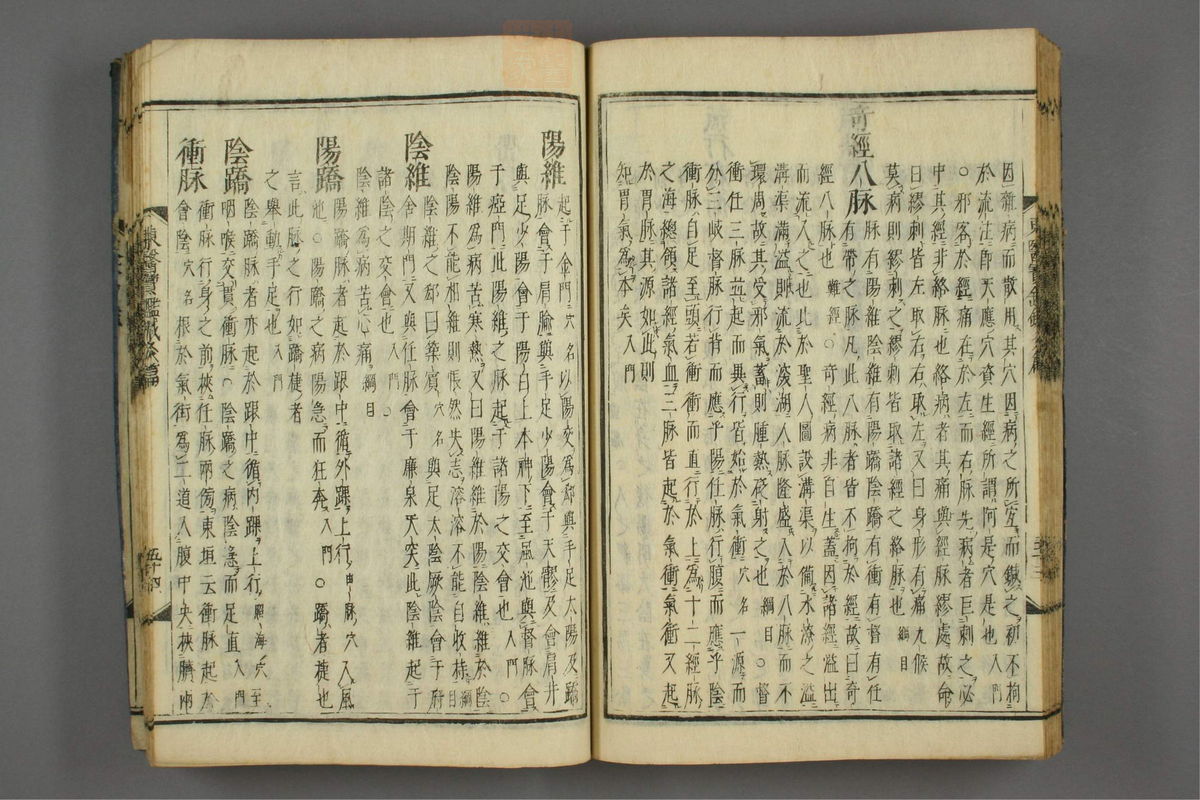 因雜病而散用其穴因病之所宜而鍼之初不拘
於流注卽天應穴資生經所謂阿是穴是也入門
○邪客於經痛在於左而右脉先病者巨刺之必
中其經非絡脉也絡病者其痛與經脉繆處故命
曰繆刺皆左取右右取左又曰身形有痛九候
莫病則繆刺之繆刺皆取諸經之絡脉也綱目
奇經八脉
脉有陽維陰維有陽蹻陰蹻有衝有督有任
有帶之脉凡此八脉者皆不拘於經故曰奇
經八脉也難經○奇經病非自生蓋因諸經溢出
而流入之也比於聖人圖設溝渠以備水潦之溢
溝渠滿溢則流於深湖人脉隆盛入於八脉而不
環周故其受邪氣蓄則腫熱砭射之也綱目○督
衝任三脉並起而異行皆始於氣衝穴名一源而
分三歧督脉行背而應乎陽任脉行腹而應乎陰
衝脉自足至頭若衝衝而直行於上爲十二經脉
之海總領諸經氣血三脉皆起於氣衝氣衝又起
於胃脉其源如此則
知胃氣爲本矣入門
陽維
起于金門穴名以陽交爲郄與手足太陽及蹻
脉會于肩臑與手足少陽會于天髎及會肩井
與足少陽會于陽白上本神下至風池與督脉會
于瘂門此陽維之脉起于諸陽之交會也入門○
陽維爲病苦寒熱又曰陽維維於陽陰維維於陰
陰陽不能相維則悵然失志溶溶不能自收持綱目
陰維
陰維之郄曰築賓穴名與足太陰厥陰會于府
舍期門又與任脉會于廉泉天突此陰維起于
諸陰之交會也入門○
陰維爲病苦心痛綱目
陽蹻
陽蹻脉者起於跟中循外踝上行申脉穴入風
池○陽蹻之病陽急而狂奔入門○蹻者捷也
言此脉之行如蹻捷者
之擧動手足也入門
陰蹻
陰蹻脉者亦起於跟中循內踝上行照海穴至
咽喉交貫衝脉○陰蹻之病陰急而足直入門
衝脉
衝脉行身之前挾任脉兩傍東垣云衝脉起於
會陰穴名根於氣街爲二道入腹中央挾臍兩
東醫寶鑑
五十四